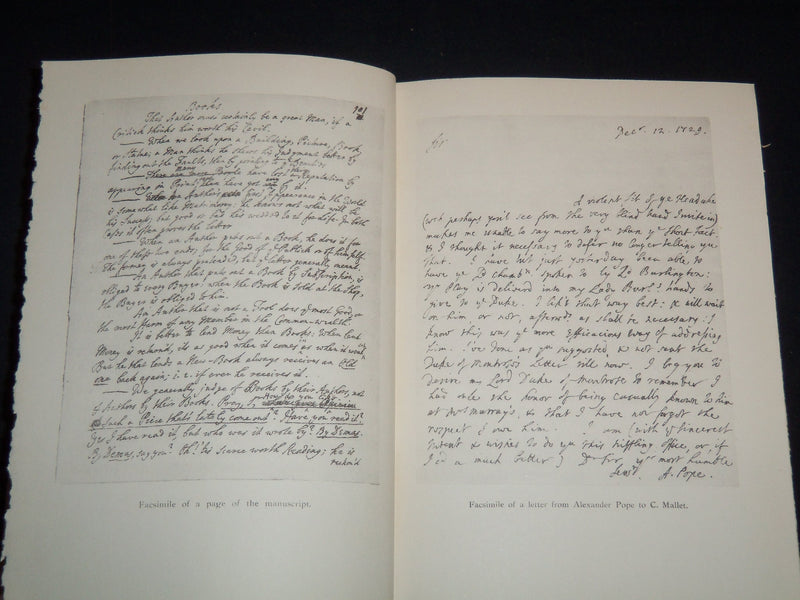 Books
This Author ows certainly be a great Man, if a
Critick thinks him worth his Cavil.
When we look upon a Building, Picture, Book,
or Statue, a Man thinks he shews his Judgment better by
finding out the Faults, than by pointing to ye Beauties.
There are more Books have lost their Reputation by
appearing in Print, than have got any by it.
An Author's first Appearance in the World
is somewhat like Matrimony: he knows not what will be
his Success, but good or bad he's wedded to it for Life. In both
Cases it often proves the latter
When an Author puts out a Book, he does it for
one of these two ends, for the Good of ye Publick or of himself.
The former is always pretended, but ye latter generally meant.
An Author that puts out a Book by Subscription, is
obliged to every Buyer: when the Book is Sold at the Shop,
the Buyer is obliged to him.
An Author that is not a Fool does ye most Good or
the most Harm of any Member in the Common-wealth.
It is better to lend Money than Books: When lent
Money is return'd, its as good when it comes as when it went
But he that lends a New-Book always receives an Old
one back again; i.e. if ever he receives it.
We generally judge of Books by their Authors, not
of Authors by their Books. Pray, Sr, how do you like
Such a Piece that's lately come out? Have you read it?
Yes I have read it, but who was it wrote by? By Demas.
By Demas, say you? Oh! 'tis scarce worth Reading; he is
reckon'd
Facsimile of a page of the manuscript.
Decr. 12. 1729.
Sr.
A violent fit of ye Headake
(wch perhaps you'l see from the very Hand I write in)
makes me unable to say more to yu than ye Short Fact:
& I thought it necessary to defer no longer telling you
that. I have but just yesterday been able, to
have ye Ld Chamb. spoken to by Ld Burlington:
yr Play is deliverd into my Lady Burl's hands to
give to ye Duke. I like that way best: & will wait
on him or not, afterwds as shall be necessary: I
know this was ye more Efficacious way of addressing
him. I've done as yu suggested, & not sent the
Duke of Montrose's Letter till now. I beg you to
desire my Lord Duke of Montrose to remember I
had only the honor of being casually known to him
at Mr Murray's, & that I have not forgot the
respect I own him. I am (with ye sincerest
Intent & wishes to do you this trifling Office, or, if
I cd a much better) Dr Sir yr most humble
Servt. A. Pope.
Facsimile of a letter from Alexander Pope to C. Mallet.